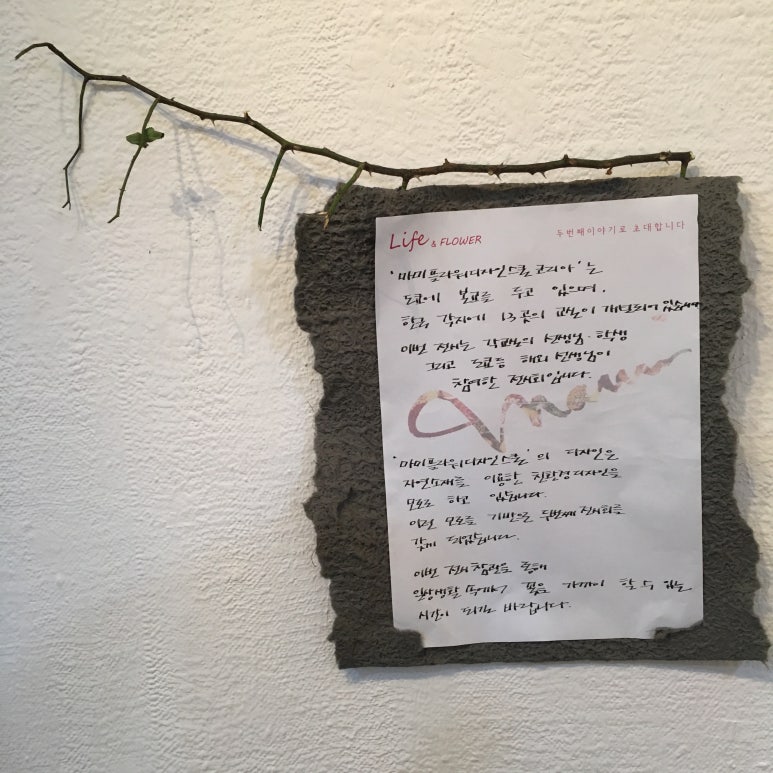 Life & FLOWER
두번째이야기로 초대합니다
'마미플라워디자인스쿨 코리아'는
도쿄에 본교를 두고 있으며,
한국 각지에 13곳의 교실이 개설되어 있습니다
이번 전시는 각교실의 선생님·학생
그리고 도쿄등 해외 선생님이
참여한 전시회입니다.
mami
'마미플라워디자인스쿨'의 디자인은
자연소재를 이용한 친환경디자인을
모토로 하고 있습니다.
이런 모토를 기반으로 두번째 전시회를
갖게 되었습니다.
이번 전시 참관을 통해
일상생활 속에서 꽃을 가까이 할 수 있는
시간이 되길 바랍니다.